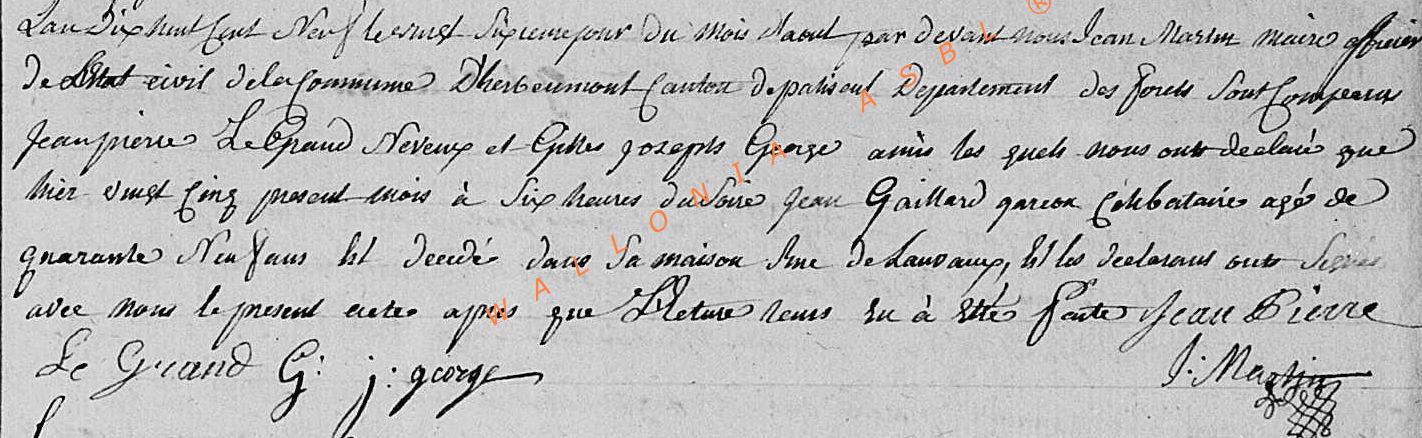 L'an Dix huit Cent Neuf le vingt Sixieme jour du mois d'aout par devant nous Jean Martin maire officier
de L'Etat civil de la Commune D'herbeumont Canton de paliseul Departement des forets Sont Comparus
Jean pierre Le Grand Neveux et Gilles Joseph George amis les quels nous ont declaré que
hier vingt Cinq present mois à Six heures du Soire Jean Gaillard garcon Célibataire agé de
quarante Neuf ans Est decedé dans Sa maison Rue de Lauvaux, Et les declarans ont Signé
avec nous le present acte apres que Lecture leurs en à Eté faite Jean Pierre
Le Grand G: j: george J: Martin
WALLONIA ASBL ®